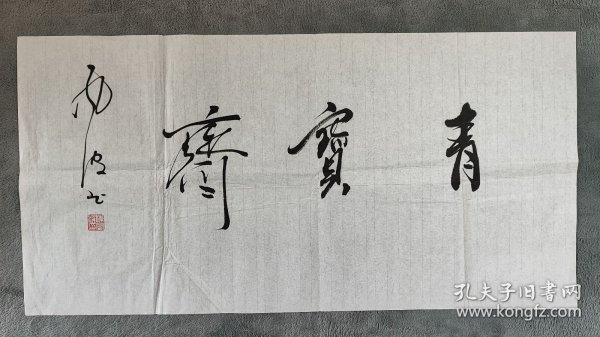 青寶齋
雨波书
孔夫子旧书网
www.kongfz.com